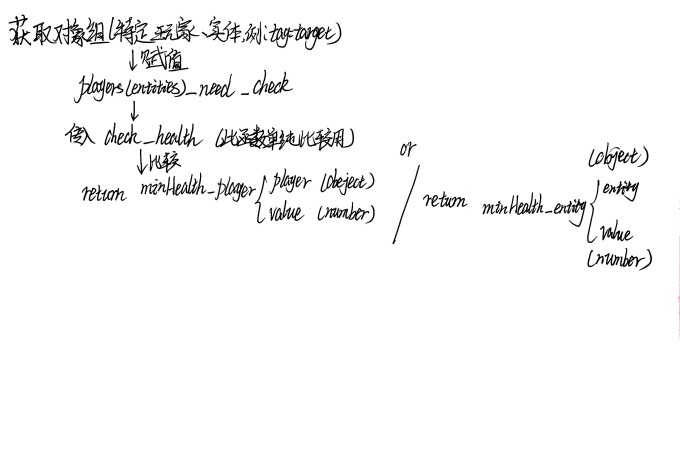 获取对象组(特定玩家、实体,例:tag=target)
↓赋值
players(entities)_need_check
↓
传入 check_health (此函数单纯比较用)
↓比较
return minHealth_player { player (obeject)
value (number)
or
/
return minHealth_entity {
(object)
entity
value
(number)